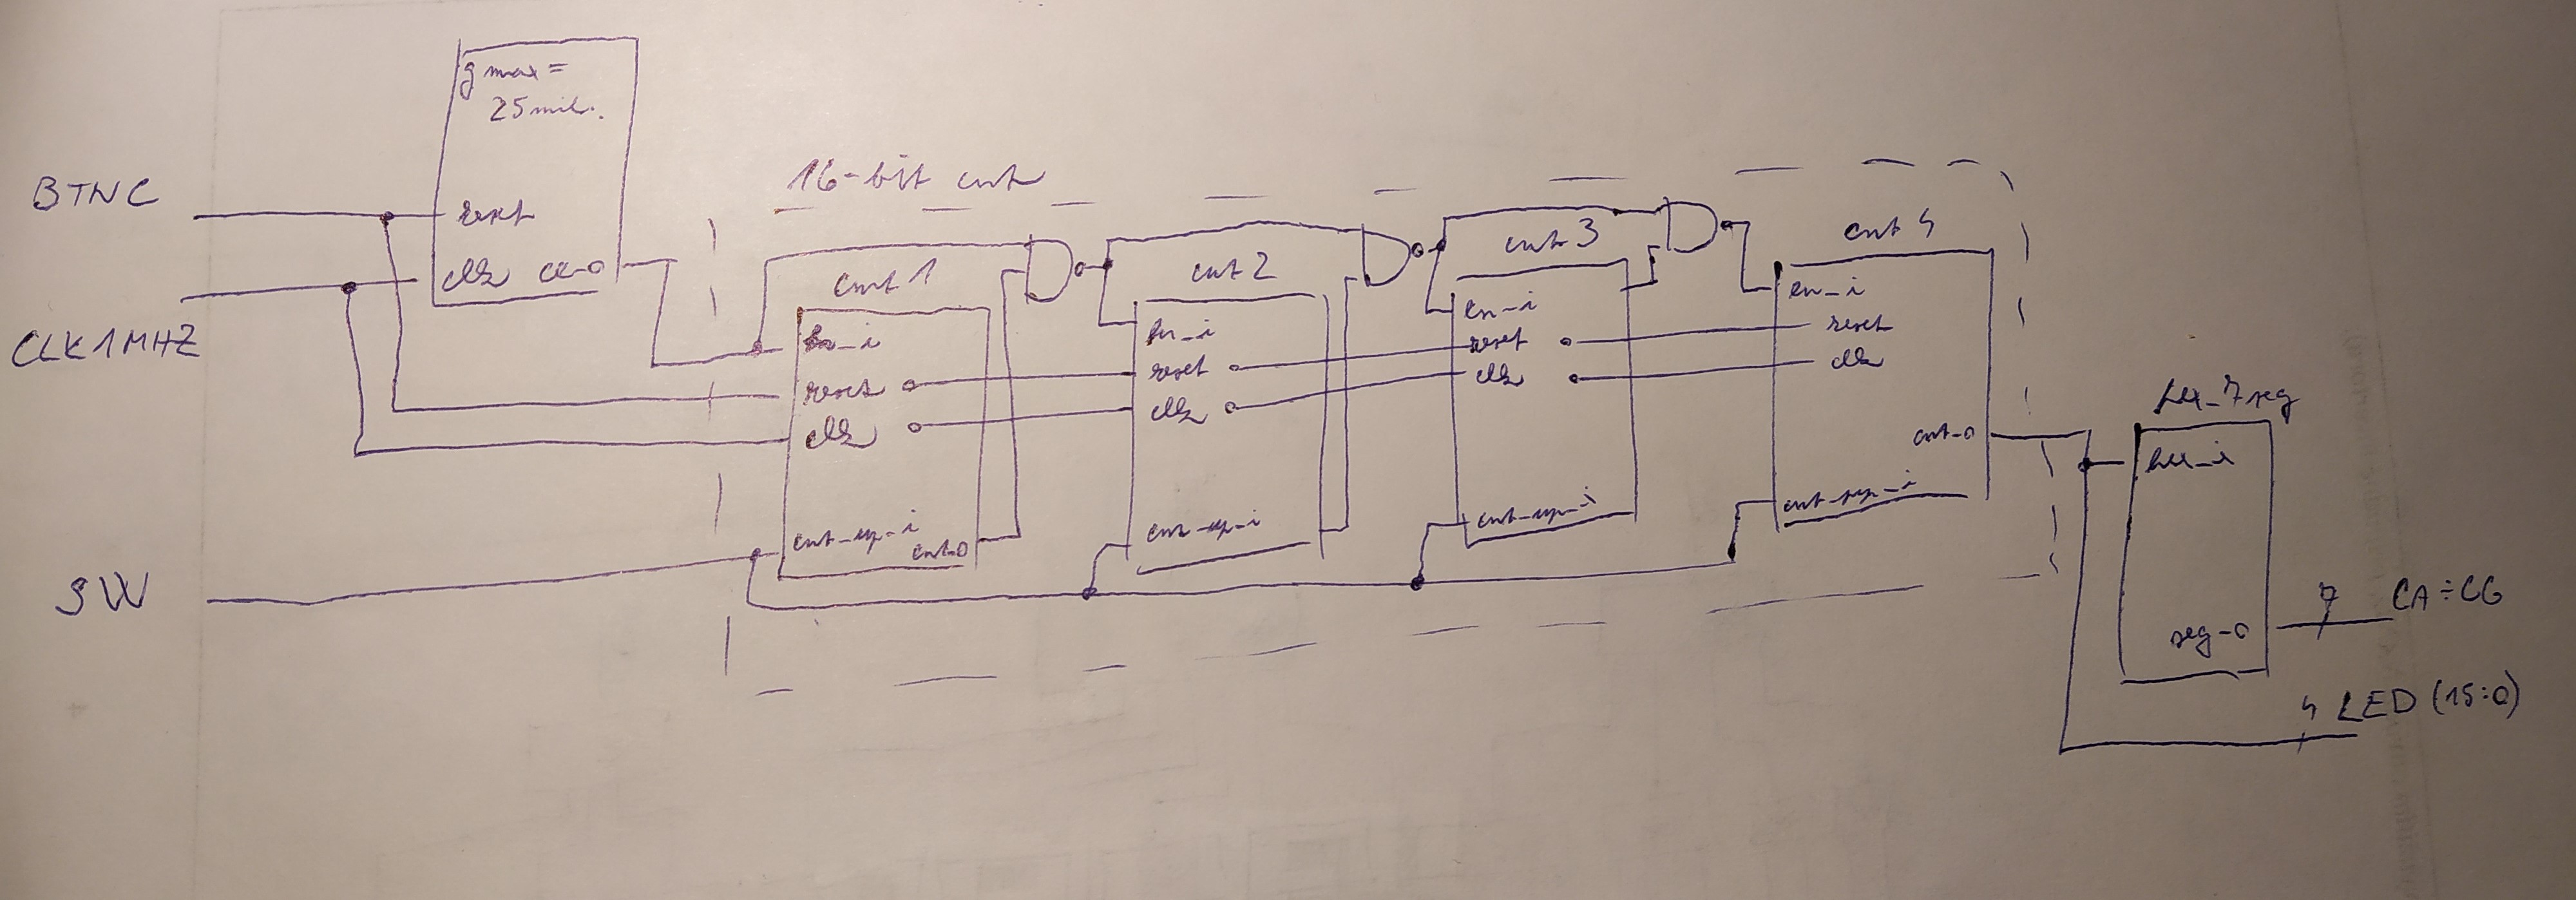 g max =
25 mil.
BTNC
reset
clk ce_o
CLK1MHZ
16-bit cnt
cnt 1
en_i
reset
clk
cnt_up_i
cnt_o
cnt 2
en_i
reset
clk
cnt_up_i
cnt 3
en_i
reset
clk
cnt_up_i
cnt 4
en_i
reset
clk
cnt_o
cnt_up_i
SW
hex_7seg
hex_i
seg_o
7 CA÷CG
4 LED (15:0)